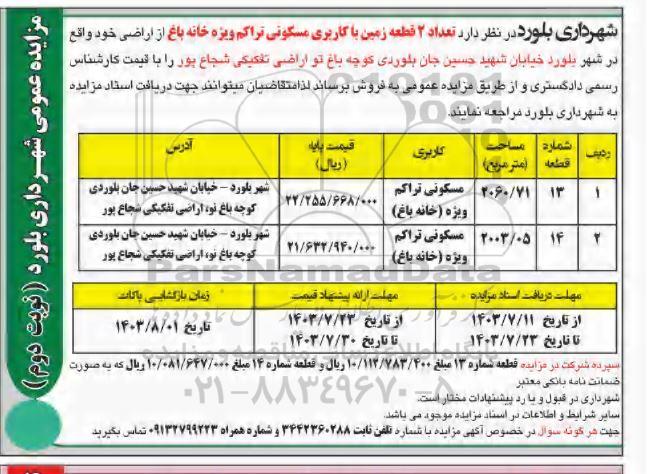 مزایده عمومی شهرداری بلورد (نوبت دوم)
شهرداری بلورد در نظر دارد تعداد ۲ قطعه زمین با کاربری مسکونی تراکم ویژه خانه باغ از اراضی خود واقع
در شهر بلورد خیابان شهید حسین جان بلوردی کوچه باغ تو اراضی تفکیکی شجاع پور را با قیمت کارشناس
رسمی دادگستری و از طریق مزایده عمومی به فروش برساند لذا متقاضیان میتوانند جهت دریافت اسناد مزایده
به شهرداری بلورد مراجعه نمایند.
ردیف شماره قطعه مساحت (متر مربع) کاربری قیمت پایه (ریال) آدرس
۱ ۱۳ ۲۰۶۰/۷۱ مسکونی تراکم ویژه (خانه باغ) ۲۲/۲۵۵/۶۶۸/۰۰۰ شهر بلورد – خیابان شهید حسین جان بلوردی کوچه باغ نو، اراضی تفکیکی شجاع پور
۲ ۱۴ ۲۰۰۳/۰۵ مسکونی تراکم ویژه (خانه باغ) ۲۱/۶۳۲/۹۴۰/۰۰۰ شهر بلورد – خیابان شهید حسین جان بلوردی کوچه باغ نو، اراضی تفکیکی شجاع پور
ParsNamadData
مهلت دریافت اسناد مزایده مهلت ارائه پیشنهاد قیمت زمان بازگشایی پاکات
از تاریخ ۱۴۰۳/۷/۱۱ از تاریخ ۱۴۰۳/۷/۲۳ تاریخ ۱۴۰۳/۸/۰۱
تا تاریخ ۱۴۰۳/۷/۲۳ تا تاریخ ۱۴۰۳/۷/۳۰
سپرده شرکت در مزایده قطعه شماره ۱۳ مبلغ ۱۰/۱۱۲/۷۸۳/۴۰۰ ریال و قطعه شماره ۱۴ مبلغ ۱۰/۰۸۱/۶۴۷/۰۰۰ ریال که به صورت
ضمانت نامه بانکی معتبر
شهرداری در قبول و یا رد پیشنهادات مختار است.
۰۲۱-۸۸۳۴۹۶۷۰-۵
سایر شرایط و اطلاعات در اسناد مزایده موجود می باشد.
جهت هر گونه سوال در خصوص آگهی مزایده با شماره تلفن ثابت ۳۴۴۲۳۶۰۲۸۸ و شماره همراه ۰۹۱۳۲۷۹۹۲۲۳ تماس بگیرید